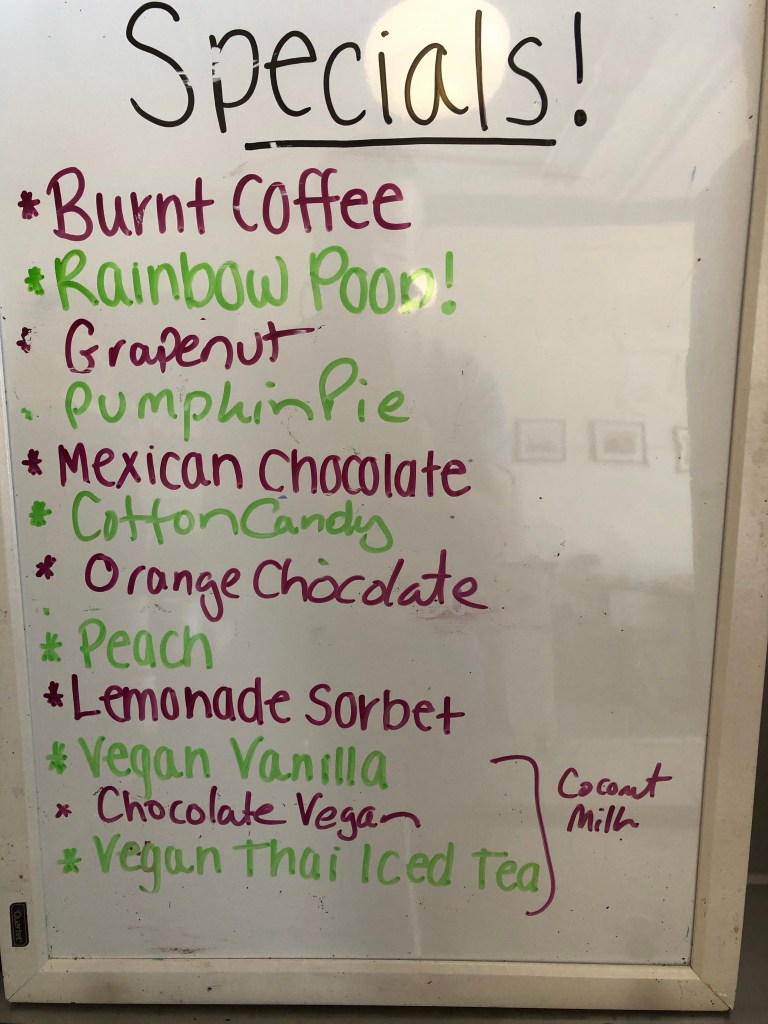 Specials!
*Burnt Coffee
*Rainbow Poop!
* Grapenut
* Pumpkin Pie
*Mexican Chocolate
* Cotton Candy
* Orange Chocolate
* Peach
*Lemonade Sorbet
*Vegan Vanilla
* Chocolate Vegan
*Vegan Thai Iced Tea
Coconut
Milk
Quartet